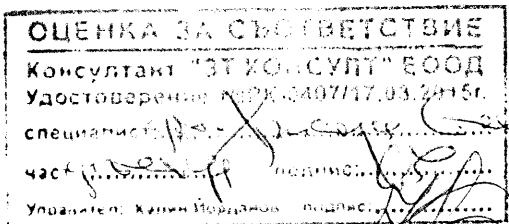 ОЦЕНКА ЗА СЪОТВЕТСТВИЕ
Консултант "ЗТ КОНСУЛТ" ЕООД
Удостоверение №РК-0407/17.03.2015г.
специалист:
част подпис:
Управител: Калин Йорданов подпис: